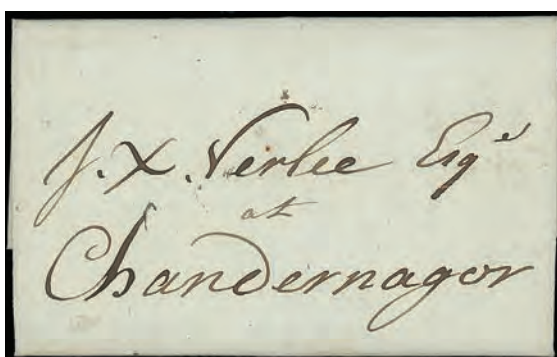 J. X. Verlee Esqr
at
Chandernagor